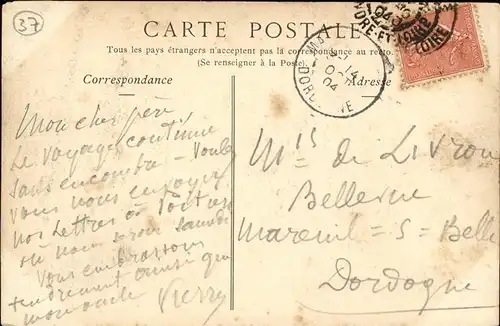 37
CARTE POSTALE
Tous les pays étrangers n'acceptent pas la correspondance au recto.
(Se renseigner à la Poste).
Correspondance
Adresse
14
04
Mon cher père
Le voyage continue
sans encombre - Voulez
vous nous envoyer
nos lettres à Poitiers
où nous serons samedi
Vous embrassons
tendrement ainsi que
Pierre
Mis de Livron
Bellevue
Mareuil = S = Belle
Dordogne